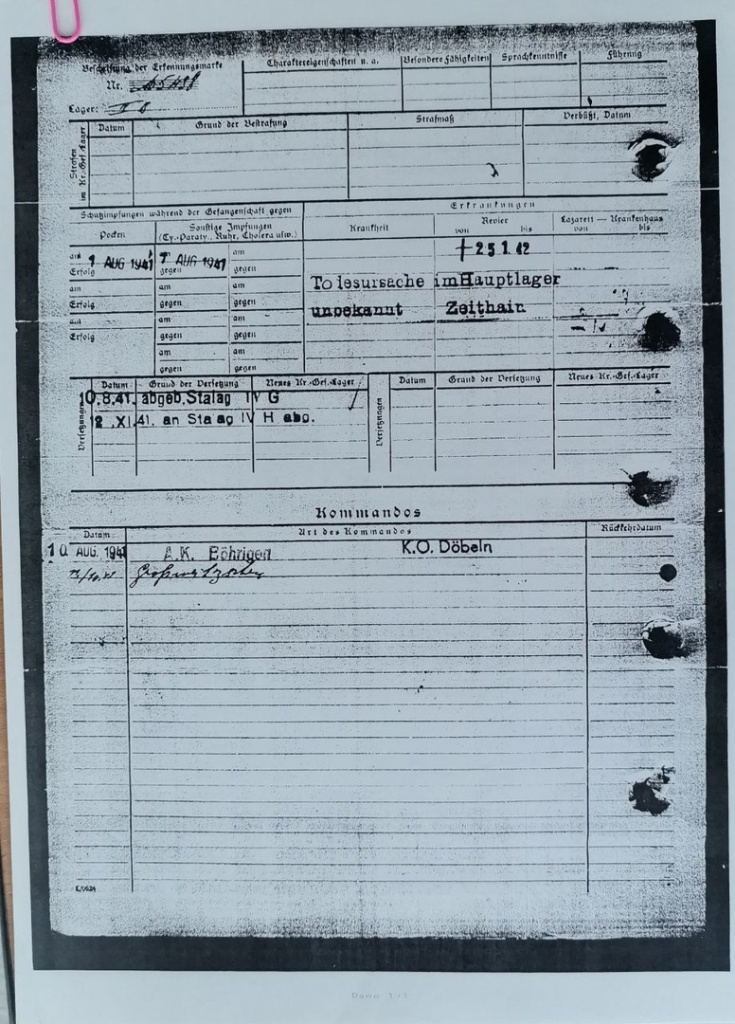 Beschriftung der Erkennungsmarke
Nr.
Lager:
Charaktereigenschaften u. a.
Besondere Fähigkeiten
Sprachkenntnisse
Führung
Strafen im Kr.-Gef.-Lager
Datum
Grund der Bestrafung
Strafmaß
Verbüßt, Datum
Schutzimpfungen während der Gefangenschaft gegen
Erkrankungen
Pocken
Sonstige Impfungen
(Ty.-Paraty., Ruhr, Cholera usw.)
Krankheit
Revier
von bis
Lazarett — Krankenhaus
von bis
am 7 AUG 1941
7 AUG 1941
am
† 25.1.42
Erfolg
gegen
gegen
am
am
am
To esursache im Hauptlager
Erfolg
gegen
gegen
unbekannt Zeithain
am
am
am
Erfolg
gegen
gegen
am
am
gegen
gegen
Versetzungen
Datum
Grund der Versetzung
Neues Kr.-Gef.-Lager
Versetzungen
Datum
Grund der Versetzung
Neues Kr.-Gef.-Lager
10.8.41. abgeb. Stalag IV G
12.XI.41. an Stalag IV H abg.
Kommandos
Datum
Art des Kommandos
Rückkehrdatum
10 AUG. 1941
A.K. Böhrigen
K.O. Döbeln